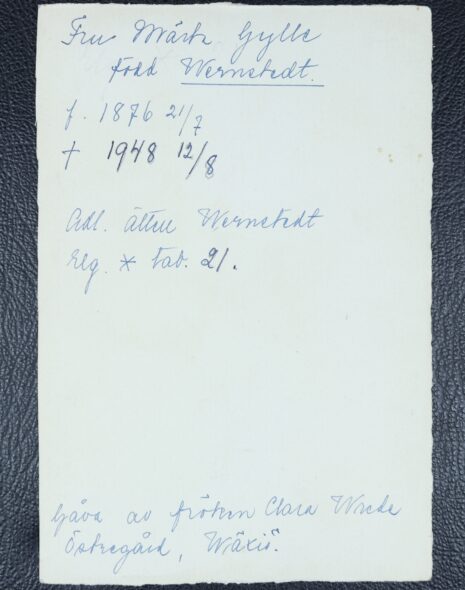 Fru Märta Gylle
född Wernstedt.
f. 1876 21/7
† 1948 12/8
Adl. ätten Wernstedt
Elg. * tab. 21.
Gåva av fröken Clara Wrede
Östregård, Wäxiö.